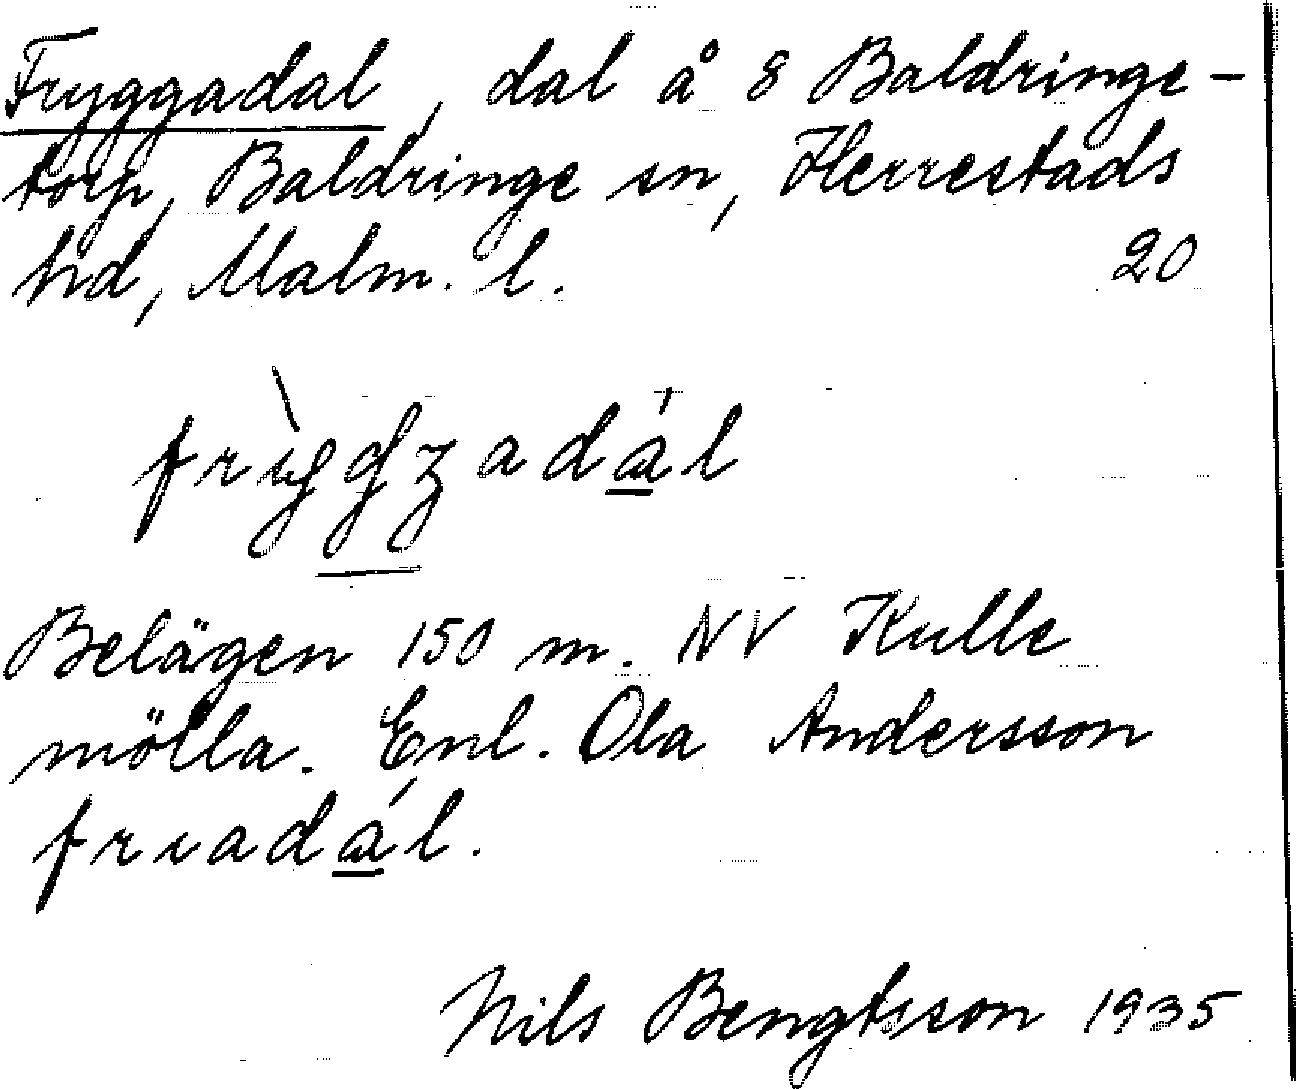 Fryggadal, dal å 8 Baldringe-
torp, Baldringe sn, Herrestads
hd, Malm. l. 20
Belägen 150 m. NV Kulle
mölla. Enl. Ola Andersson
frıadál.
Nils Bengtsson 1935